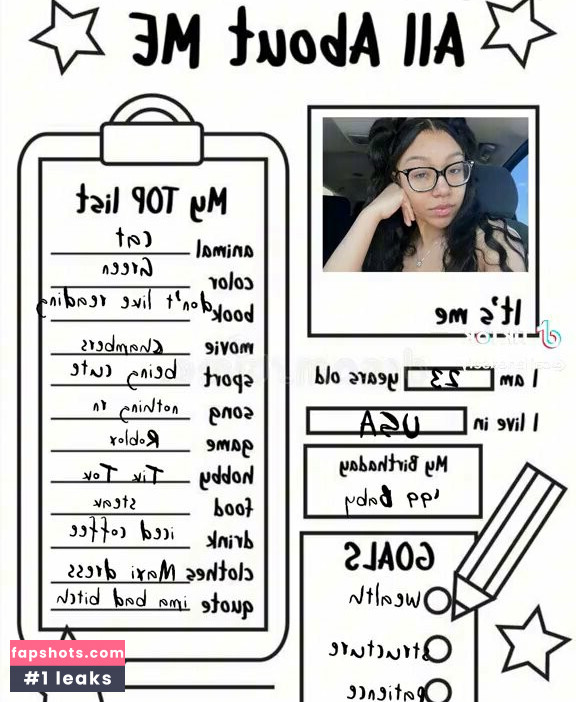 All About ME
My TOP list
animal cat
color Green
book don't like reading
movie Chambers
sport being cute
song nothing rn
game Roblox
hobby Tik Tok
food steak
drink iced coffee
clothes Maxi dress
quote ima bad bitch
It's me
TikTok
I am 23 years old
I live in USA
My Birthday
'99 Baby
GOALS
wealth
structure
patience
fapshots.com
#1 leaks